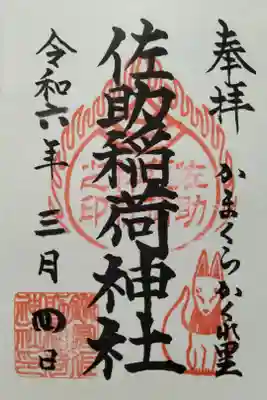 奉拝
かまくらかくれ里
佐助稲荷神社
令和六年 三月 四日
佐助
之印